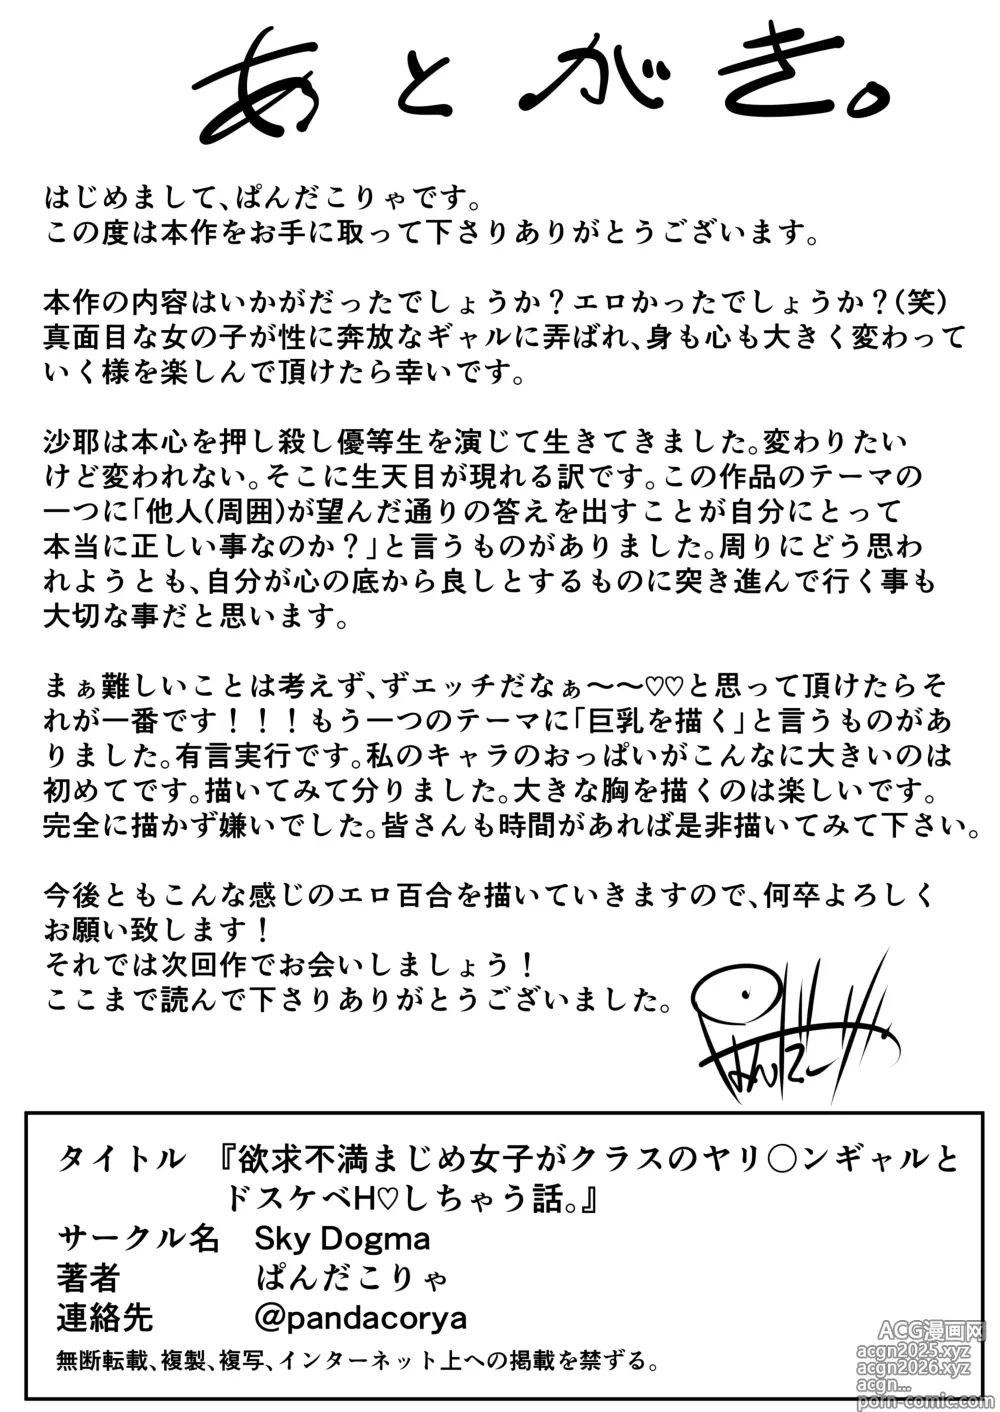 あとがき。
はじめまして、ぱんだこりゃです。
この度は本作をお手に取って下さりありがとうございます。
本作の内容はいかがだったでしょうか？エロかったでしょうか？(笑)
真面目な女の子が性に奔放なギャルに弄ばれ、身も心も大きく変わって
いく様を楽しんで頂けたら幸いです。
沙耶は本心を押し殺し優等生を演じて生きてきました。変わりたい
けど変われない。そこに生天目が現れる訳です。この作品のテーマの
一つに「他人(周囲)が望んだ通りの答えを出すことが自分にとって
本当に正しい事なのか？」と言うものがありました。周りにどう思わ
れようとも、自分が心の底から良しとするものに突き進んで行く事も
大切な事だと思います。
まぁ難しいことは考えず、ずエッチだなぁ〜〜♡♡と思って頂けたらそ
れが一番です！！！もう一つのテーマに「巨乳を描く」と言うものがあ
りました。有言実行です。私のキャラのおっぱいがこんなに大きいのは
初めてです。描いてみて分りました。大きな胸を描くのは楽しいです。
完全に描かず嫌いでした。皆さんも時間があれば是非描いてみて下さい。
今後ともこんな感じのエロ百合を描いていきますので、何卒よろしく
お願い致します！
それでは次回作でお会いしましょう！
ここまで読んで下さりありがとうございました。
タイトル 『欲求不満まじめ女子がクラスのヤリ〇ンギャルと
ドスケベH♡しちゃう話。』
サークル名 Sky Dogma
著者 ぱんだこりゃ
連絡先 @pandacorya
無断転載、複製、複写、インターネット上への掲載を禁ずる。
ACG漫画网
acgn2025.xyz
acgn2026.xyz
acgn...
porn-comic.com